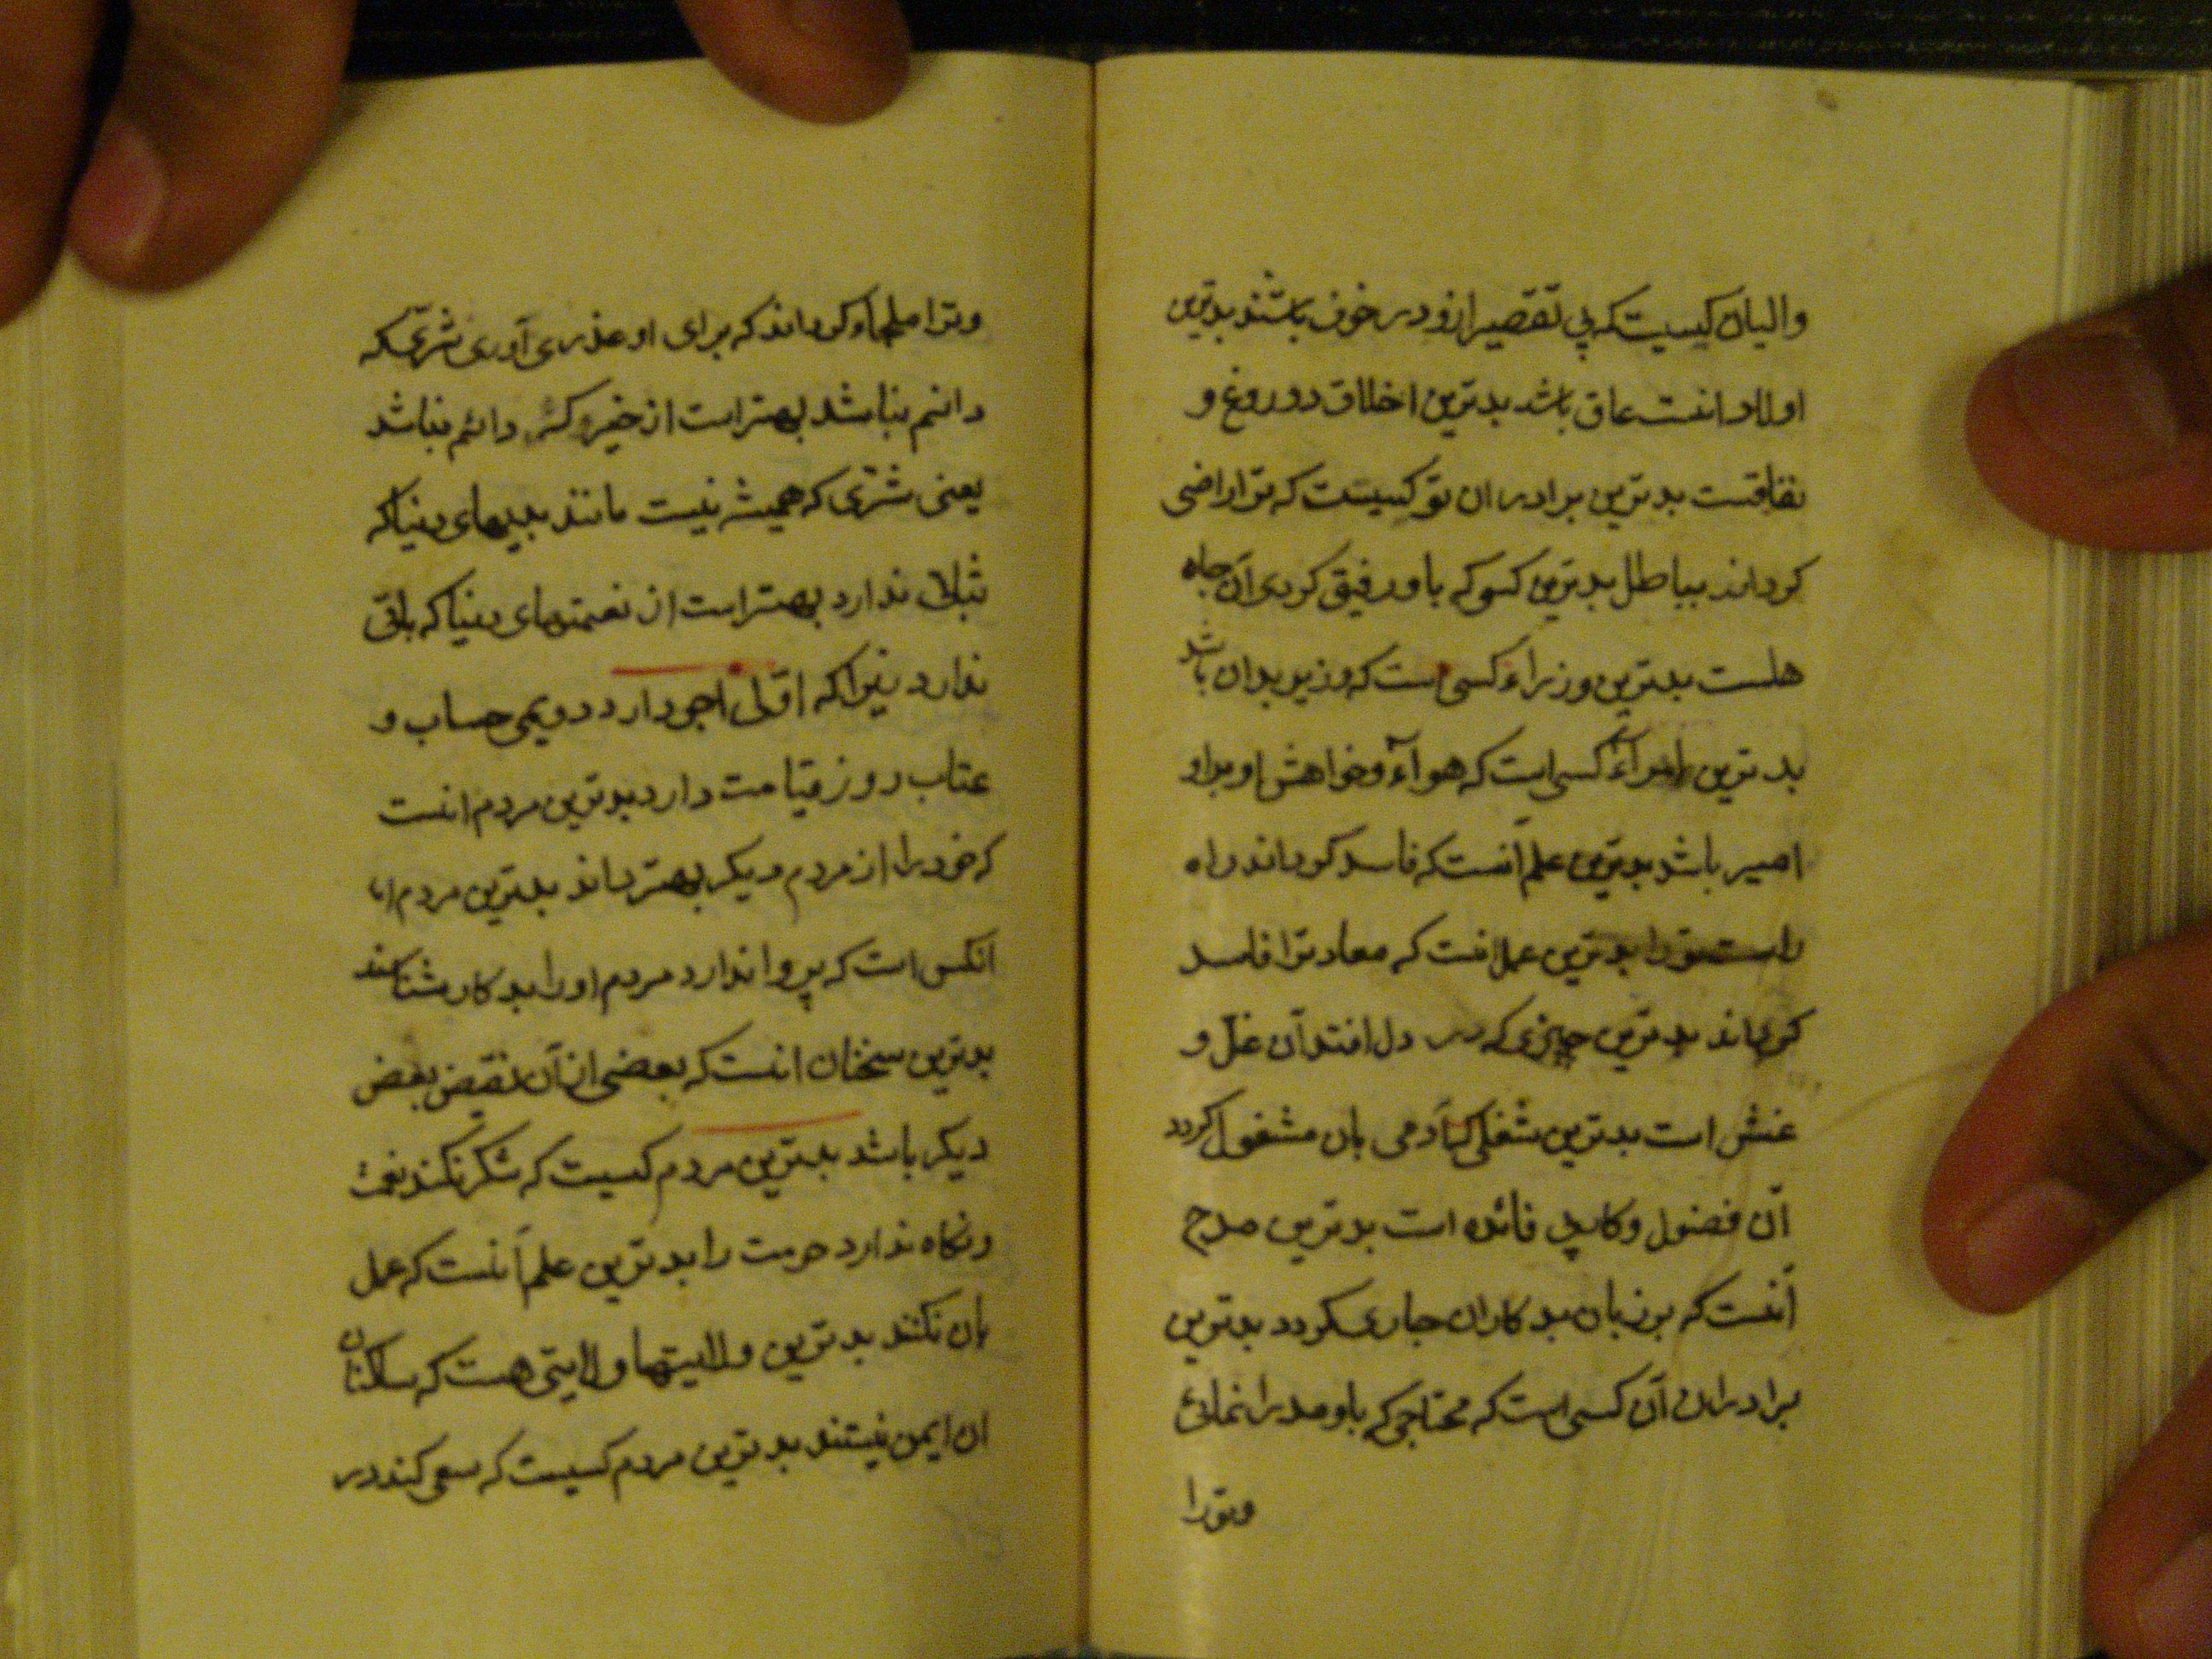 والیان کسیست که بی تقصیر ازو در خوف باشند بدترین
اولاد انست عاق باشد بدترین اخلاق دوروغ و
نفاقست بدترین برادران تو کسیست که ترا راضی
کرداند بباطل بدترین کسی که باو رفیق کردی آن جاه
هلست بدترین وزراء کسی است که وزیر بدان باشد
بد ترین امراء کسی است که هواء و خواهش او براو
امیر باشد بدترین علم آنست که فاسد کرداند راه
راست تو را بدترین عمل انست که معاد ترا فاسد
کرداند بدترین چیزی که در دل افتد آن غل و
غش است بدترین شغلی که آدمی بان مشغول کردد
آن فضول و کار بی فائده است بدترین مدح
آنست که بر زبان بد کاران جاری کردد بدترین
برادران آن کسی است که محتاجی که باو مدارا نمائی
و تو را
و ترا ملجاء کرداند که برای او عذری آوری شری که
دائم نباشد بهتر است از خیر که دائم نباشد
یعنی شری که همیشه نیست مانند بدیهای دنیا که
ثبات ندارد بهتر است از نعمتهای دنیا که باقی
ندارد زیرا که اولی اجر دارد دویمی حساب و
عتاب روز قیامت دارد بدترین مردم انست
که خود را از مردم دیکر بهتر داند بدترین مردم
آنکس است که پروا ندارد مردم او را بد کار شناسند
بدترین سخنان انست که بعضی از آن نقیض بعض
دیکر باشد بدترین مردم کسیست که شکر نکند نعمت
و نکاه ندارد حرمت را بدترین علم آنست که عمل
بان نکنند بدترین ولایتها ولایتی هست که ساکنان
ان ایمن نیستند بدترین مردم کسیست که سعی کند در